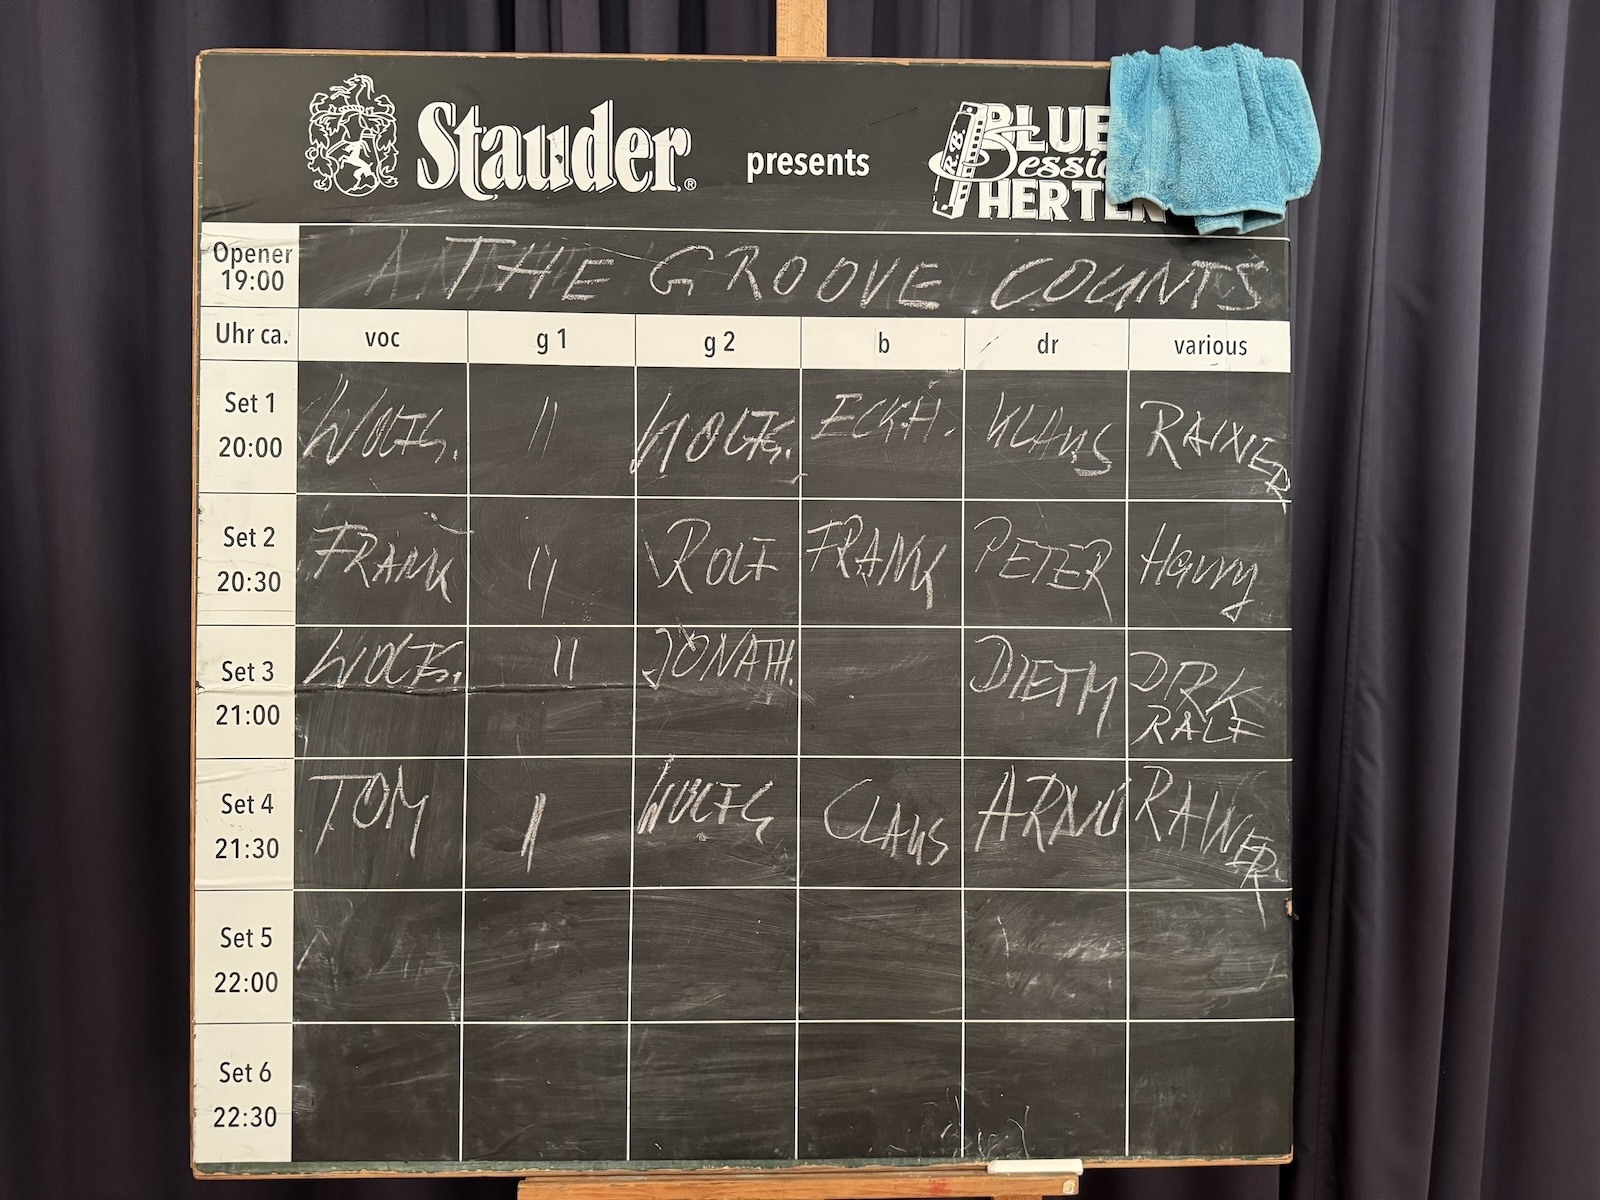 Stauder® presents BLUE Sessi HERTEN
R.B.
Opener 19:00 THE GROOVE COUNTS
Uhr ca. voc g 1 g 2 b dr various
Set 1 20:00 WOLFG. // WOLFG. ECKH. KLAUS RAINER
Set 2 20:30 FRANK // ROLF FRANK PETER Harry
Set 3 21:00 WOLFG. // JONATH. DIETM DIRK RALF
Set 4 21:30 TOM // WOLFG CLAUS ARNO RAINER
Set 5 22:00
Set 6 22:30